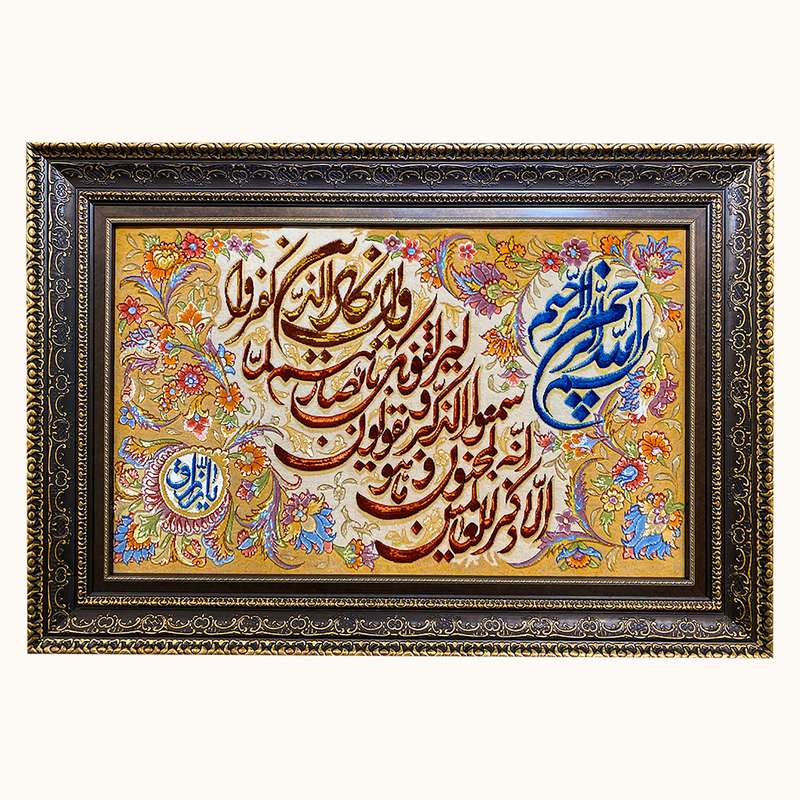 بسم الله الرحمن الرحیم
وان یکاد الذین کفروا
لیزلقونک بابصارهم لما
سمعوا الذکر و یقولون
انه لمجنون و ما هو
الا ذکر للعالمین
یا رزاق